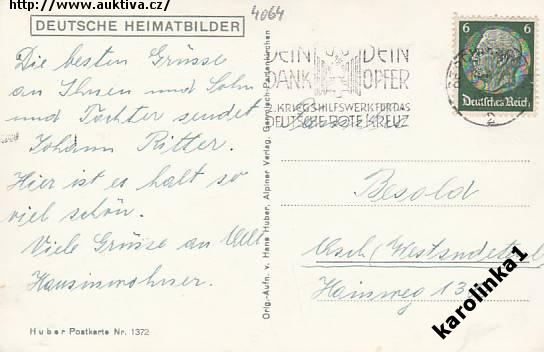 http://www.auktiva.cz/
4064
DEUTSCHE HEIMATBILDER
Die besten Grüsse
an Ihnen und Sohn
und Tochter sendet
Johann Ritter.
Hier ist es halt so
viel schön.
Viele Grüsse an Alle
Hauseinwohner.
Huber Postkarte Nr. 1372
Orig.-Aufn. v. Hans Huber, Alpiner Verlag, Garmisch-Partenkirchen
DEIN DEIN
DANK OPFER
KRIEGSHILFSWERK FÜR DAS
DEUTSCHE ROTE KREUZ
6 6
Deutsches Reich
Besold
Asch (Westsudetel)
Hainweg 13
karolinka1